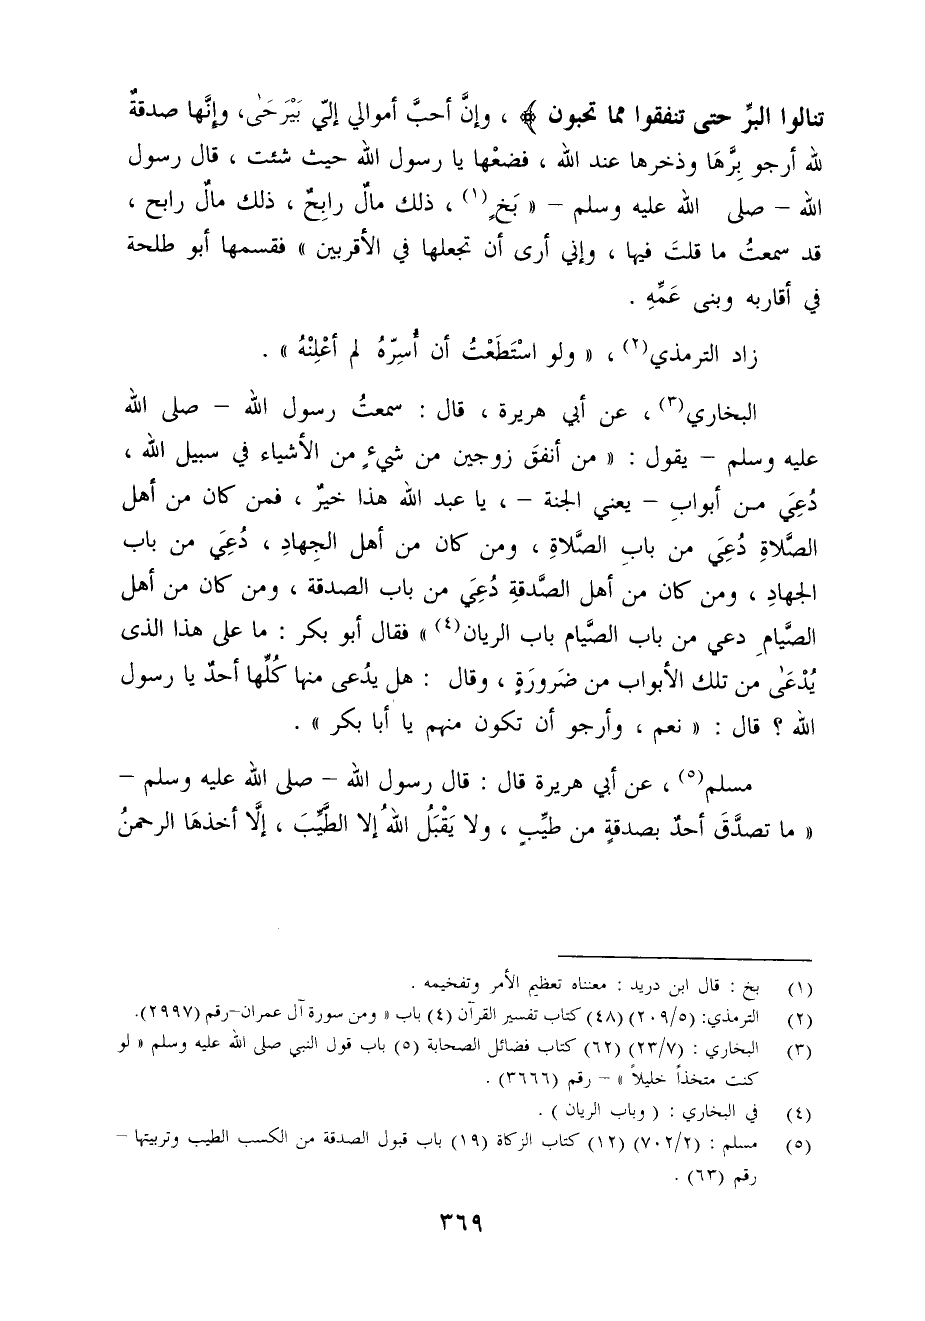 تنالوا البرِّ حتى تنفقوا مما تحبون ﴾ ، وإنَّ أحبَّ أموالي إليّ بَيْرَحَىٰ، وإنَّها صدقةٌ
لله أرجو بِرَّهَا وذخرها عند الله ، فضعْها يا رسول الله حيث شئت ، قال رسول
الله – صلى الله عليه وسلم – « بَخٍ(١) ، ذلك مالٌ رابِحٌ ، ذلك مالٌ رابح ،
قد سمعتُ ما قلتَ فيها ، وإني أرى أن تجعلها في الأقربين » فقسمها أبو طلحة
في أقاربه وبنى عَمِّهِ .
زاد الترمذي(٢) ، « ولو اسْتَطَعْتُ أن أُسِرّهُ لم أعْلِنْهُ » .
البخاري(٣) ، عن أبي هريرة ، قال : سمعتُ رسول الله – صلى الله
عليه وسلم – يقول : « من أنفقَ زوجين من شيءٍ من الأشياء في سبيل الله ،
دُعِيَ مـن أبوابِ – يعني الجنة – ، يا عبد الله هذا خيرٌ ، فمن كان من أهل
الصَّلاةِ دُعِيَ من بابِ الصَّلاةِ ، ومن كان من أهل الجِهادِ ، دُعِيَ من باب
الجهادِ ، ومن كان من أهل الصَّدقةِ دُعِيَ من باب الصدقة ، ومن كان من أهل
الصَّيام دعي من باب الصَّيام باب الريان(٤) » فقال أبو بكر : ما على هذا الذى
يُدْعَىٰ من تلك الأبواب من ضَرورَةٍ ، وقال : هل يدُعى منها كُلِّها أحدٌ يا رسول
الله ؟ قال : « نعم ، وأرجو أن تكون منهم يا أبا بكر » .
مسلم(٥) ، عن أبي هريرة قال : قال رسول الله – صلى الله عليه وسلم –
« ما تصدَّقَ أحدٌ بصدقةٍ من طيِّبٍ ، ولا يَقْبَلُ اللهُ إلا الطَّيِّبَ ، إلَّا أخذهَا الرحمنُ
(١) بخ : قال ابن دريد : معناه تعظيم الأمر وتفخيمه .
(٢) الترمذي: (٢٠٩/٥) (٤٨) كتاب تفسير القرآن (٤) باب « ومن سورة آل عمران–رقم (٢٩٩٧).
(٣) البخاري : (٢٣/٧) (٦٢) كتاب فضائل الصحابة (٥) باب قول النبي صلى الله عليه وسلم « لو
كنت متخذاً خليلاً » – رقم (٣٦٦٦) .
(٤) في البخاري : ( وباب الريان ) .
(٥) مسلم : (٧٠٢/٢) (١٢) كتاب الزكاة (١٩) باب قبول الصدقة من الكسب الطيب وتربيتها –
رقم (٦٣) .
٣٦٩